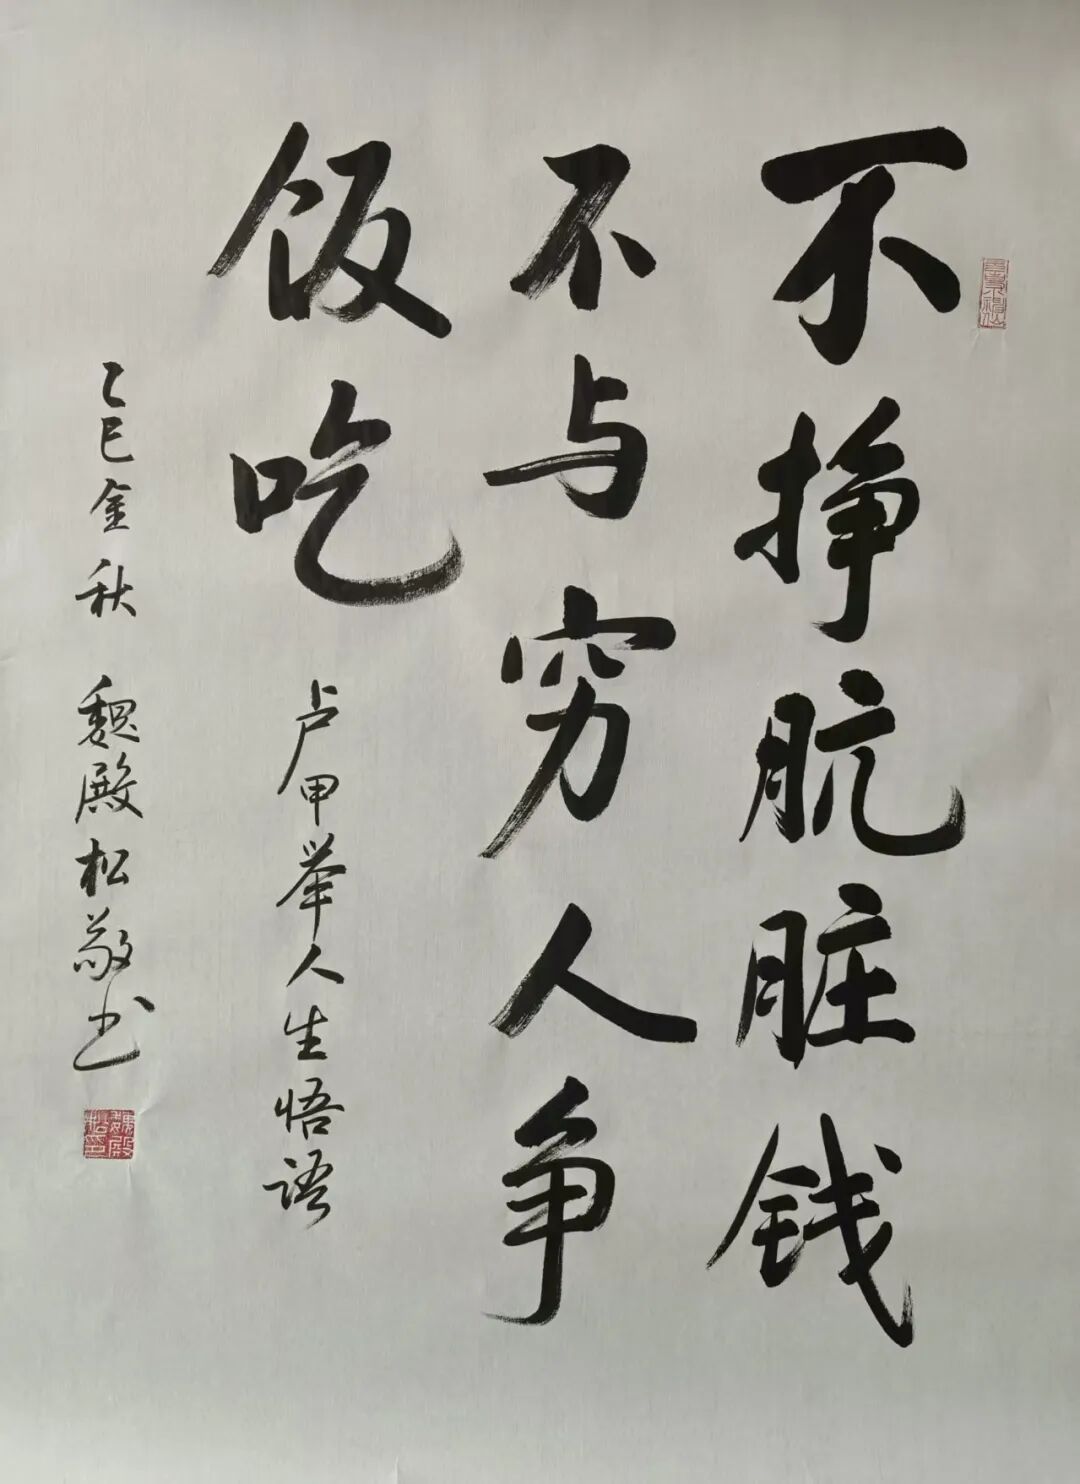 不挣肮脏钱
不与穷人争
饭吃
卢甲举人生悟语
乙巳金秋 魏殿松敬书
魏殿松印